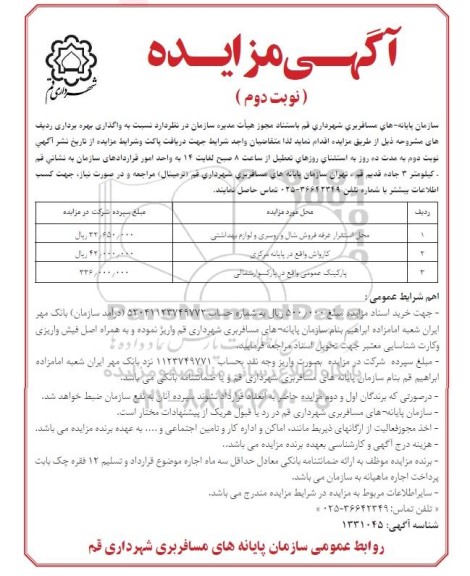 آگهی مزایده
( نوبت دوم )
شهرداری قم
سازمان پایانه-های مسافربری شهرداری قم باستناد مجوز هیأت مدیره سازمان در نظردارد نسبت به واگذاری بهره برداری ردیف های
مشروحه ذیل از طریق مزایده اقدام نماید لذا متقاضیان واجد شرایط جهت دریافت پاکت وشرایط مزایده از تاریخ نشر آگهی
نوبت دوم به مدت ده روز به استثنای روزهای تعطیل از ساعت ۸ صبح لغایت ۱۴ به واحد امور قراردادهای سازمان به نشانی قم
، کیلومتر ۳ جاده قدیم قم ، تهران سازمان پایانه های مسافربری شهرداری قم (ترمینال) مراجعه و در صورت نیاز، جهت کسب
اطلاعات بیشتر با شماره تلفن ۳۶۶۴۲۳۴۹-۰۲۵ تماس حاصل نمایند.
ردیف محل مورد مزایده مبلغ سپرده شرکت در مزایده
۱ محل استقرار غرفه فروش شال و روسری و لوازم بهداشتی ۳۲,۶۵۰,۰۰۰ ریال
۲ کارواش واقع در پایانه مرکزی ۴۲,۰۰۰,۰۰۰ ریال
۳ پارکینگ عمومی واقع در پارکسوارشمالی ۳۳۶,۰۰۰,۰۰۰
اهم شرایط عمومی:
- جهت خرید اسناد مزایده مبلغ ۵۰۰,۰۰۰ ریال به شماره حساب ۵۲۰۴۱۱۲۳۷۴۹۷۷۲ (درآمد سازمان) بانک مهر
ایران شعبه امامزاده ابراهیم بنام سازمان پایانه-های مسافربری شهرداری قم واریز نموده و به همراه اصل فیش واریزی
وکارت شناسایی معتبر جهت تحویل اسناد مزایده مراجعه فرمایید.
- مبلغ سپرده شرکت در مزایده بصورت واریز وجه نقد بحساب ۱۱۲۳۷۴۹۷۷۱ نزد بانک مهر ایران شعبه امامزاده
ابراهیم قم بنام سازمان پایانه های مسافربری شهرداری قم و یا ضمانتنامه بانکی می باشد.
- درصورتی که برندگان اول و دوم مزایده حاضر به انعقاد قرارداد نشوند سپرده آنان به نفع سازمان ضبط خواهد شد.
- سازمان پایانه-های مسافربری شهرداری قم در رد یا قبول هریک از پیشنهادات مختار است.
- اخذ مجوزفعالیت از ارگانهای ذیربط مانند، اماکن و اداره کار و تامین اجتماعی و .... به عهده برنده مزایده می باشد.
- هزینه درج آگهی و کارشناسی بعهده برنده مزایده می باشد..
- برنده مزایده موظف به ارائه ضمانتنامه بانکی معادل حداقل سه ماه اجاره موضوع قرارداد و تسلیم ۱۲ فقره چک بابت
پرداخت اجاره ماهیانه به سازمان می باشد.
- سایراطلاعات مربوط به مزایده در شرایط مزایده مندرج می باشد.
« تلفن تماس: ۳۶۶۴۲۳۴۹-۰۲۵ »
شناسه آگهی: ۱۳۳۱۰۴۵
روابط عمومی سازمان پایانه های مسافربری شهرداری قم